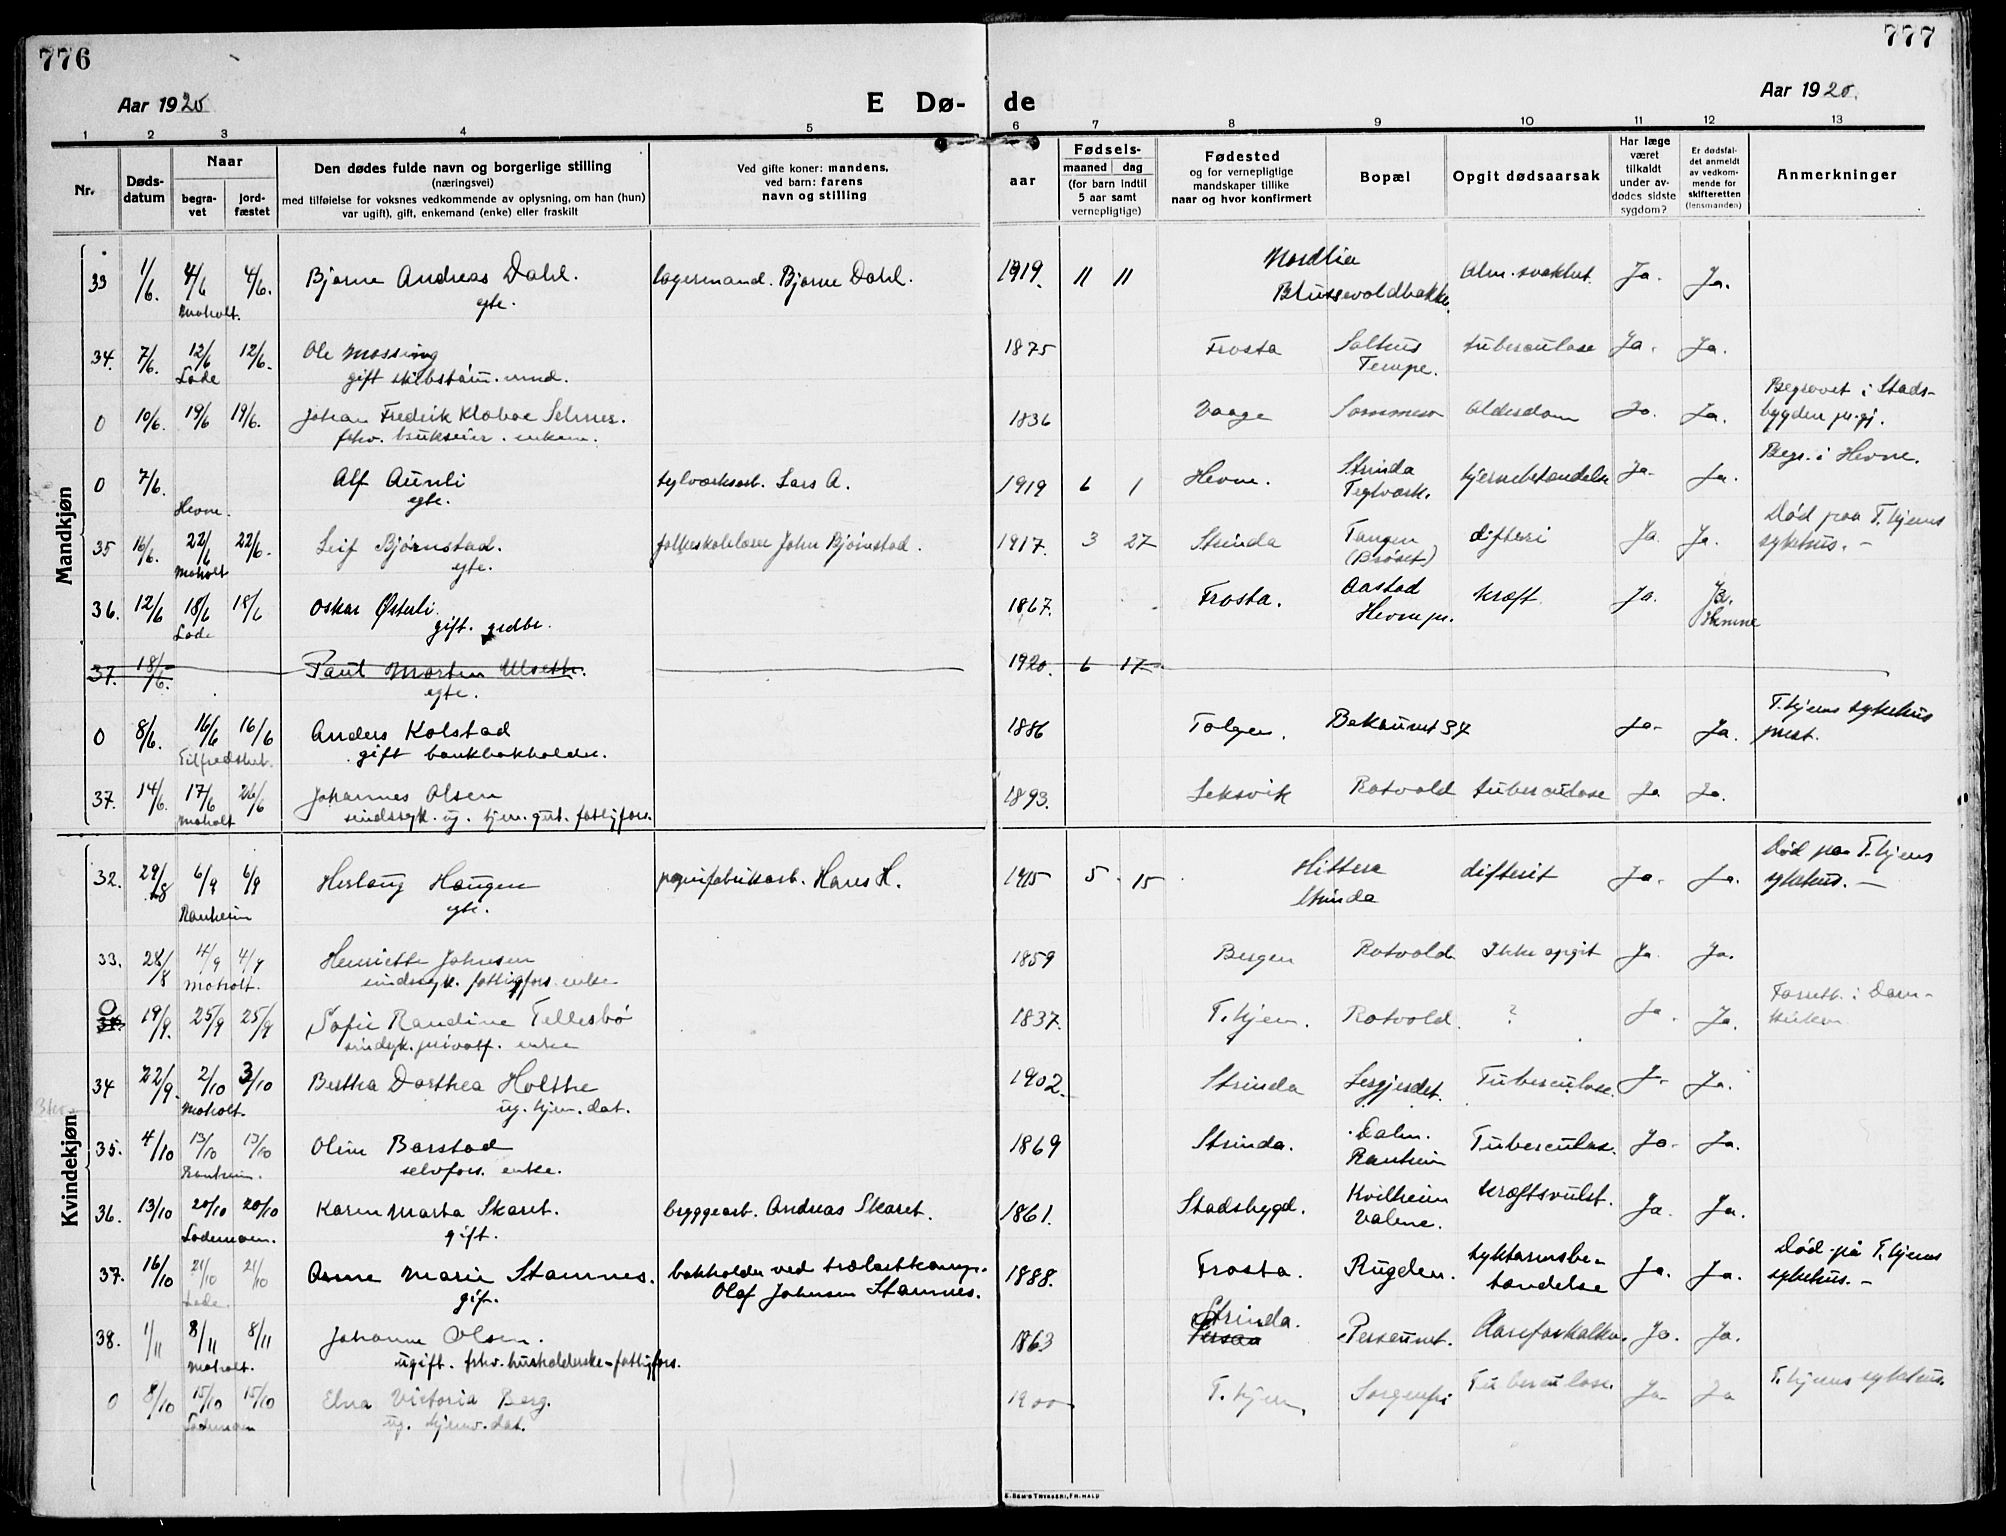 776
777
Aar 1920
E Dø-
de
Aar 1920.
1 2 3 4 5 6 7 8 9 10 11 12 13
Nr.
Døds-
datum
Naar
begra-
vet
jord-
fæstet
Den dødes fulde navn og borgerlige stilling
(næringsvei)
med tilføielse for voksnes vedkommende av oplysning, om han (hun)
var ugift), gift, enkemand (enke) eller fraskilt
Ved gifte koner: mandens,
ved barn: farens
navn og stilling
Fødsels-
aar
maaned dag
(for barn indtil
5 aar samt
vernepligtige)
Fødested
og for vernepligtige
mandskaper tillike
naar og hvor konfirmert
Bopæl
Opgit dødsaarsak
Har læge
været
tilkaldt
under av-
dødes sidste
sygdom?
Er dødsfal-
det anmeldt
av vedkom-
mende for
skifteretten
(lensmanden)
Anmerkninger
Mandkjøn
33 1/6. 4/6 4/6. Bjarne Andreas Dahl. lagermand. Bjarne Dahl. 1919. 11 11 Nordlia Alm. svakhet. Ja. Ja.
Moholt. egte. Blussevoldbakke.
34. 7/6. 12/6 12/6. Ole Mossing 1875 Frosta Salthus tuberculose Ja. Ja.
Lade gift Tempe.
0 10/6. 19/6 19/6. Johan Fredrik Klæboe Selmer. 1836 Vaage Alderdom Ja. Ja. Begravet i Stads-
frhv. brukseier. enkem. bygden
0 7/6. Alf Aunli Lars A. 1919 6 1 Hevne. Strinda hjernebetændelse Ja. Ja. Begr. i Hevne.
Hevne. egte. Teglværk.
35 16/6. 22/6 22/6. Leif Bjørnstad. folkeskolelærer John Bjørnstad. 1917. 3 27 Strinda Tangen difteri Ja Ja. Død paa T.hjems
Moholt egte. (Brøset) sykehus. –
36. 12/6 18/6 18/6 Oskar Østerli. 1867. Frosta. Aastad kræft. Ja. Ja.
Lade gift. grdbr. Hevne pr. Hemne
37. 18/6. Paul Morten Ulseth. 1920 6 17
egte.
0 8/6. 16/6 16/6 Anders Kolstad 1886 Tolgen. Bakaunet 37 Ja. Ja. T.hjems sykehus
Tilfredshet. gift bankbokholder. prest.
37. 14/6. 17/6 26/6 Johannes Olsen 1893. Leksvik Rotvold tuberculose Ja Ja.
Moholt sindssyk. ug. tjen. gut. fattigfors.
Kvindekjøn
32. 29/8 6/9 6/9 Herlaug Haugen papirfabrikarb. Hans H. 1915 5 15 Hittera difterit Ja. Ja. Død paa T.hjems
Ranheim egte. Strinda sykehus. –
33. 28/8 4/9 4/9 Henriette Johnsen 1859 Bergen Rotvold Ikke opgit Ja Ja.
Moholt. sindssyk. fattigfors. enke
0 34. 19/9. 25/9 25/9 Sofie Randine Tellesbø 1837. T.hjem. Rotvold. ? Ja. Ja. Forretb. i Dom-
sindsyk. privatf. enke kirken
34 22/9. 2/10 3/10 Bertha Dorthea Holthe 1902. Strinda Tuberculose. Ja. Ja.
Moholt. ug. hjem. dat.
35. 4/10 13/10 13/10 Oline Barstad 1869 Strinda. Dalen. Tuberculose. Ja. Ja.
Ranheim. selvfors. enke. Ranheim
36. 13/10 20/10 20/10 Karen Marta Skaret. bryggearb. Andreas Skaret. 1861. Stadsbygd. Kvilheim kræftsvulst. Ja. Ja.
Lademoen. gift. Valene.
37. 16/10 21/10 21/10 Anne Marie Stamnes. bokholder ved trælastkomp. 1888. Frosta. Rugden. tyktarmsbe- Ja. Ja. Død på T.hjems
Lade. gift. Olaf Johnsen Stamnes. tændelse sykehus. –
38. 1/11 8/11 8/11 Johanne Olsen. 1863 Strinda. Persaunet. Aareforkalkn. Ja. Ja.
Moholt. ugift. frhv. husholderske – fattigfors. Persaa
0 8/10 15/10 15/10 Elna Victoria Berg. 1900 T.hjem. Sorgenfri Tuberculose. Ja. Ja T.hjems sykehus.
Lademoen ug. hjemv. dat.
E. SEM'S TRYKKERI, FR.HALD